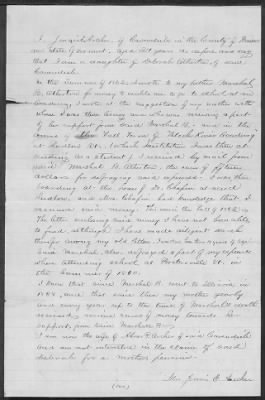 I Jennie A. Archer, of Cavendish in the County of Windsor
and State of Vermont, aged 31 years do depose and say
that I am a daughter of Deborah Atherton, of said
Cavendish.
In the Summer of 1862 I wrote to my brother Marshal
B. Atherton for money to enable me to go to school at
I wrote it at the suggestion of my mother with
whom I was then living and
of her support from said Marshal B.; and in the
course of the Fall Term of "Black River Academy"
at Ludlow Vt. (which Institution I was then at-
tending as a Student) I received by mail from
said Marshal B. Atherton, the sum of fifteen
dollars for defraying said expenses. I was then
boarding at the house of Mr. Chapin at said
Ludlow, and Mrs. Chapin had knowledge that I
received said money. This was in the fall of 1862.
The letter enclosing said money I have not been able
to find, although I have made diligent search
things among my old letters.
said Marshal, also defrayed a part of my expenses
when attending school at Proctorsville Vt. in
the summer of 1860.
I know that said Marshal B. went to Illinois in
1858, and that since then my mother yearly
and every year up to the time of Marshal's death
received various sums of money towards her
support, from said Marshal B.
I am now the wife of Alvar F. Archer of said Cavendish
and am not interested in the claim of said
Deborah for a mothers pension.
Mrs Jennie A. Archer